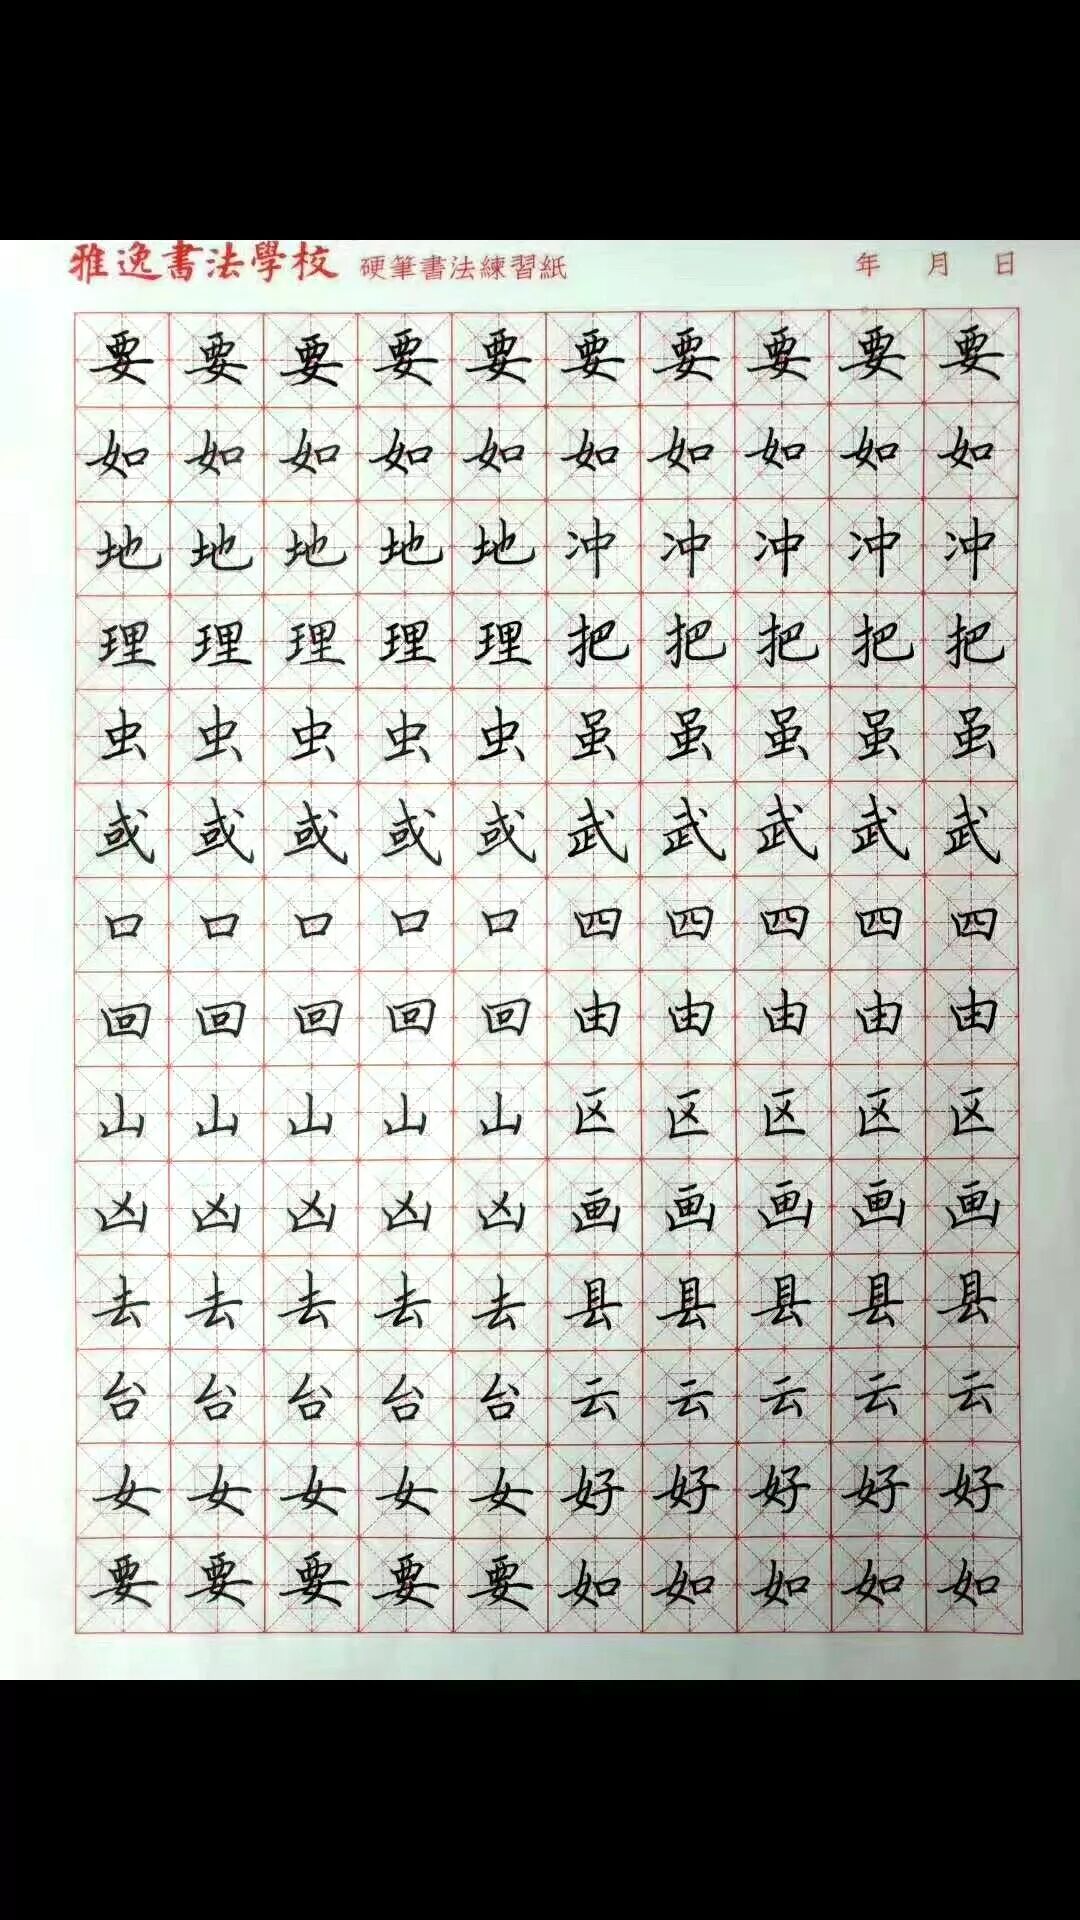 雅逸書法學校 硬筆書法練習紙 年 月 日
要要要要要要要要要要
如如如如如如如如如如
地地地地地冲冲冲冲冲
理理理理理把把把把把
虫虫虫虫虫虽虽虽虽虽
或或或或或武武武武武
口口口口口四四四四四
回回回回回由由由由由
山山山山山区区区区区
凶凶凶凶凶画画画画画
去去去去去县县县县县
台台台台台云云云云云
女女女女女好好好好好
要要要要要如如如如如